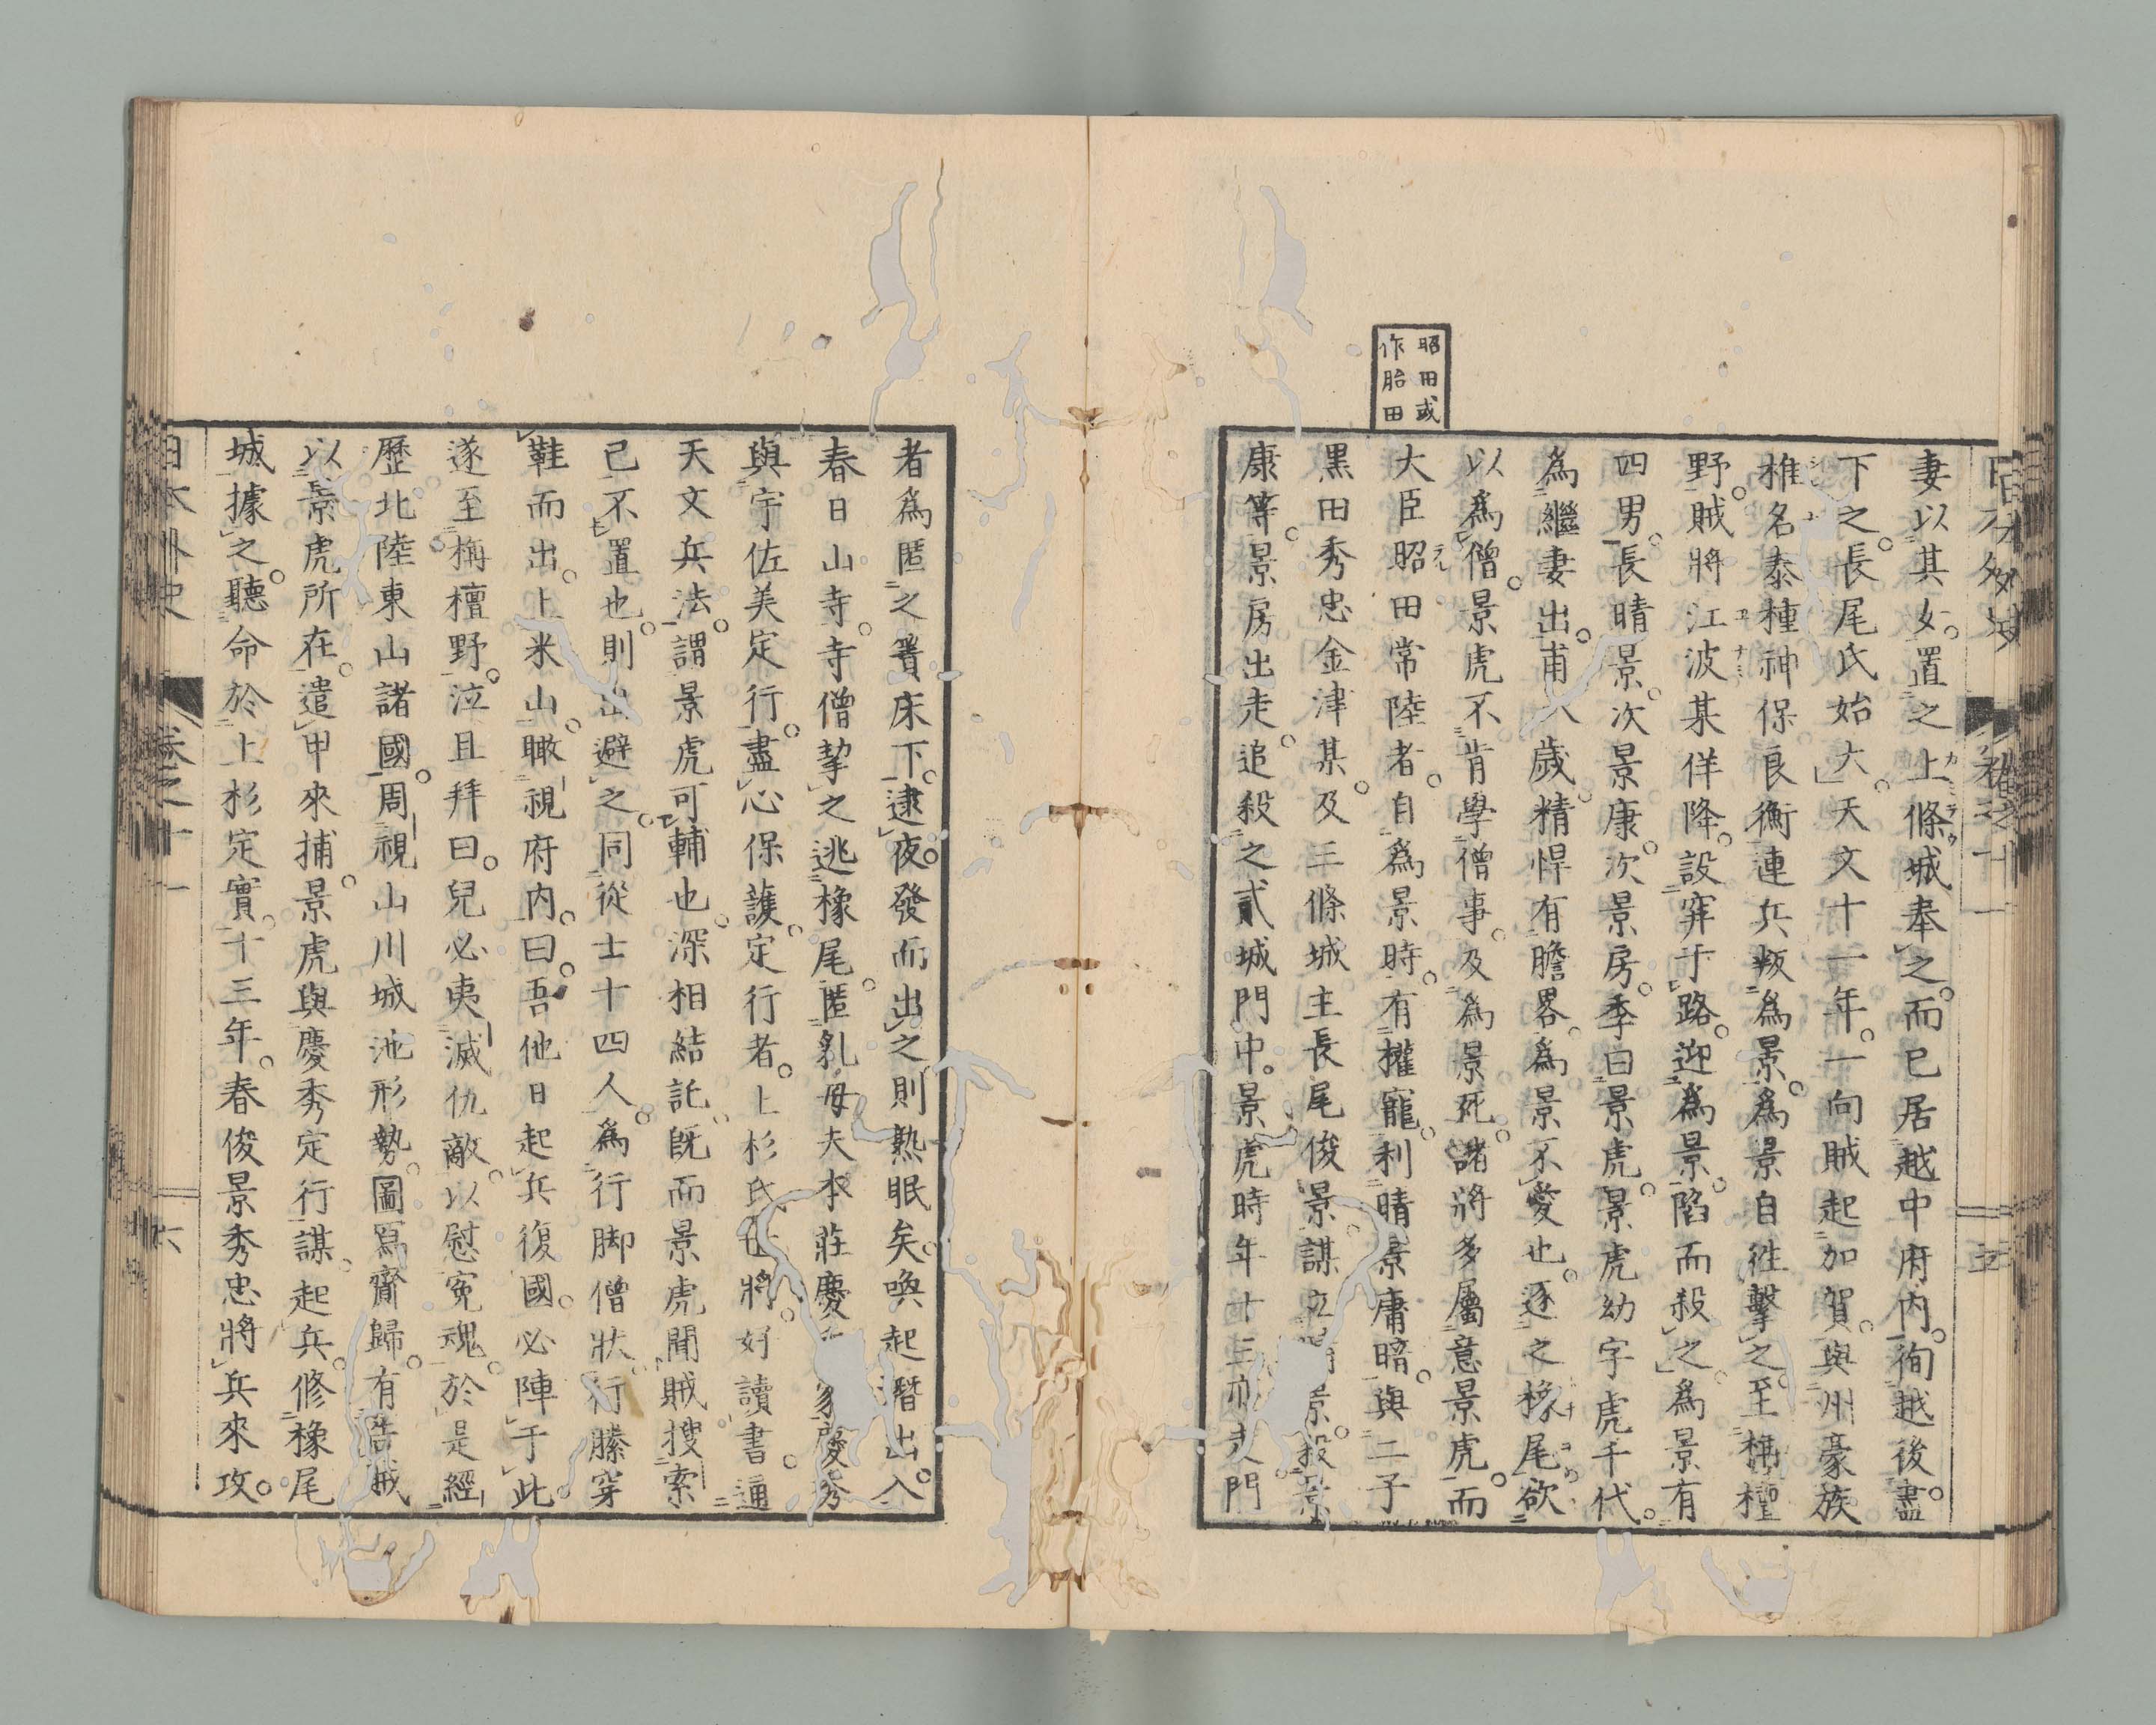 昭田或
作胎田
妻以其女。置之上條城奉之。而已居越中府内。徇越後盡。
下之。長尾氏始大。天文十一年。一向賊起加賀。與州豪族
椎名泰種神保良衡連兵叛爲景。爲景自往擊之。至栴檀
野。賊將江波某佯降。設穽于路。迎爲景。陷而殺之。爲景有
四男。長晴景。次景康。次景房。季曰景虎。景虎幼字虎千代。
爲繼妻出。甫八歲。精悍有膽畧。爲景不愛也。逐之橡尾。欲
以爲僧。景虎不肯學僧事。及爲景死。諸將多屬意景虎。而
大臣昭田常陸者。自爲景時。有權寵。利晴景庸暗。與二子
黒田秀忠金津某。及三條城主長尾俊景謀立晴景。殺景
康等。景房出走。追殺之貳城門中。景虎時年十三。亦走門
者爲匿之簀床下。逮夜。發而出之。則熟眠矣。喚起潛出。入
春日山寺。寺僧挈之逃橡尾。匿乳母夫本莊慶秀家。慶秀
與宇佐美定行。盡心保護。定行者。上杉氏世將。好讀書。通
天文兵法。謂景虎可輔也。深相結託。既而景虎聞賊搜索
已不置也。則出避之。同從士十四人。爲行脚僧狀。行縢穿
鞋而出。上米山。瞰視府内。曰。吾他日起兵復國。必陣于此。
遂至栴檀野。泣且拜曰。兒必夷滅仇敵。以慰冤魂。於是經
歷北陸東山諸國。周視山川城池形勢。圖寫齎歸。有告賊
以景虎所在。遣甲來捕。景虎與慶秀定行謀。起兵。修橡尾
城據之。聽命於上杉定實。十三年。春俊景秀忠將兵來攻。
日本外史 卷之十一 六